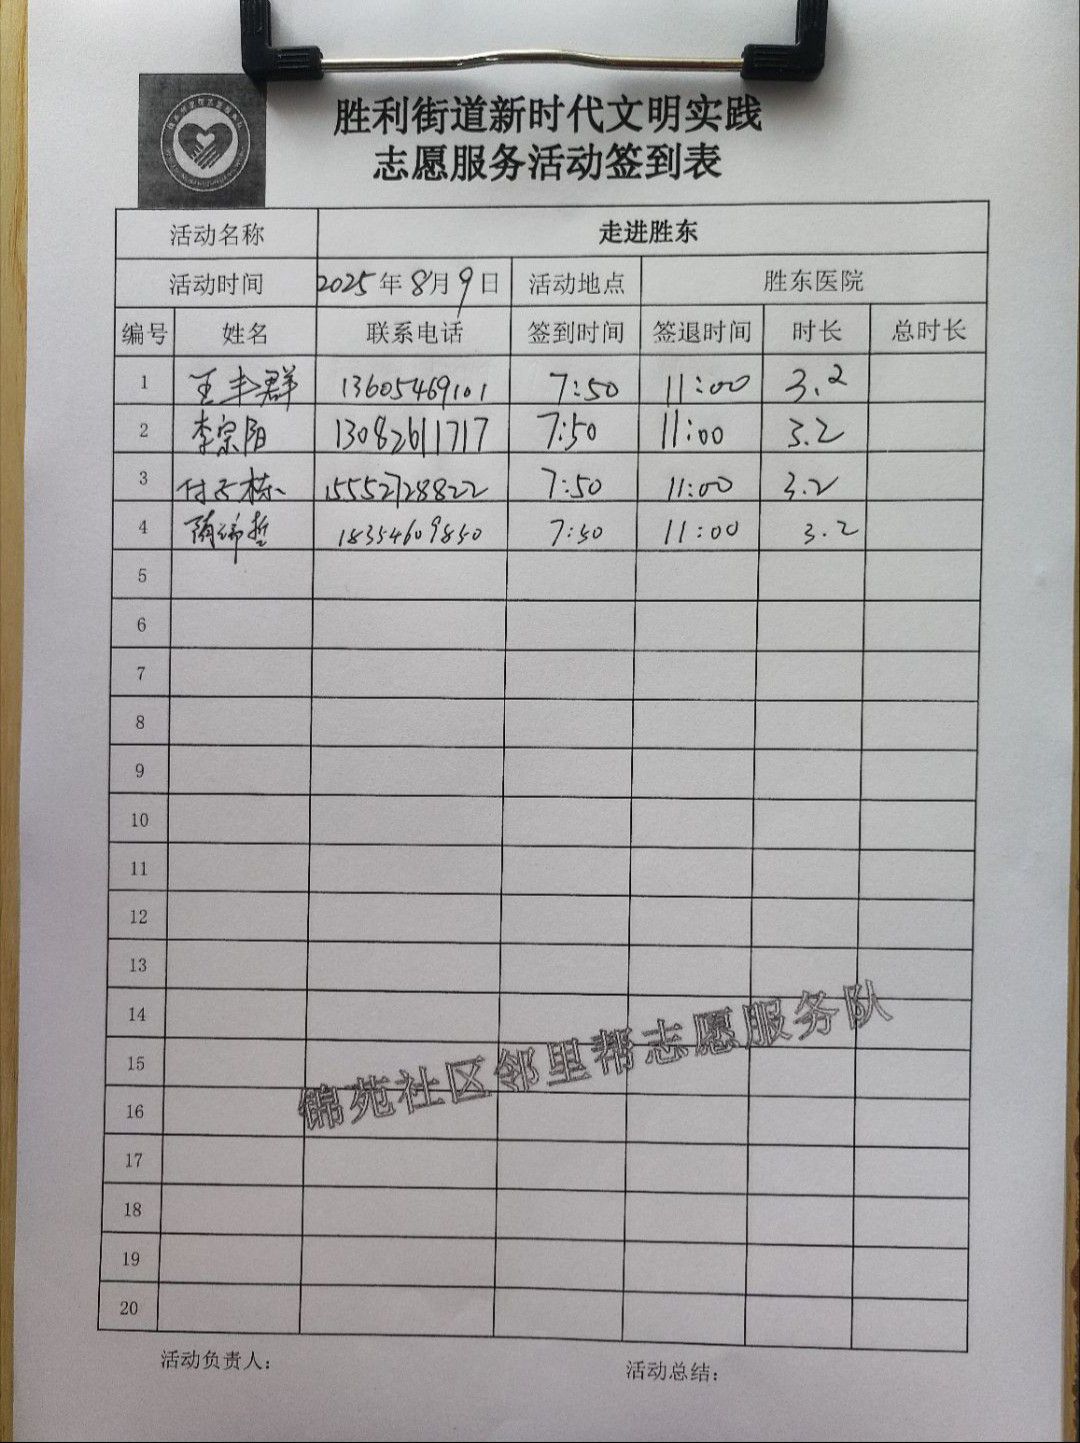 胜利街道新时代文明实践
志愿服务活动签到表
活动名称 走进胜东
活动时间 2025年8月9日 活动地点 胜东医院
编号 姓名 联系电话 签到时间 签退时间 时长 总时长
1 王丰群 13605469101 7:50 11:00 3.2
2 李宗阳 13082611717 7:50 11:00 3.2
3 付子栋 15552728822 7:50 11:00 3.2
4 18354609850 7:50 11:00 3.2
5
6
7
8
9
10
11
12
13
14
15
16
17
18
19
20
锦苑社区邻里帮志愿服务队
活动负责人: 活动总结: